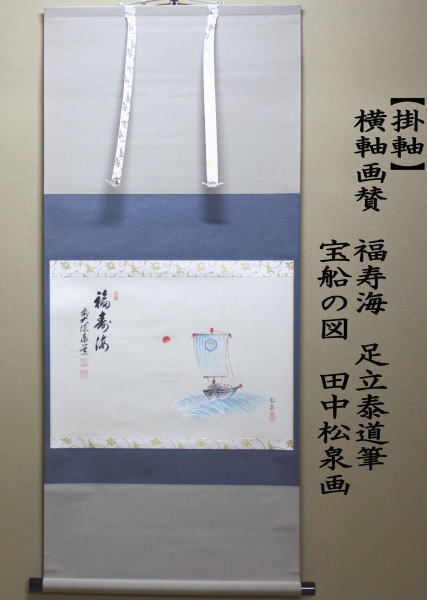 【掛軸】
横軸画賛 福寿海 足立泰道筆
宝船の図 田中松泉画
福寿海